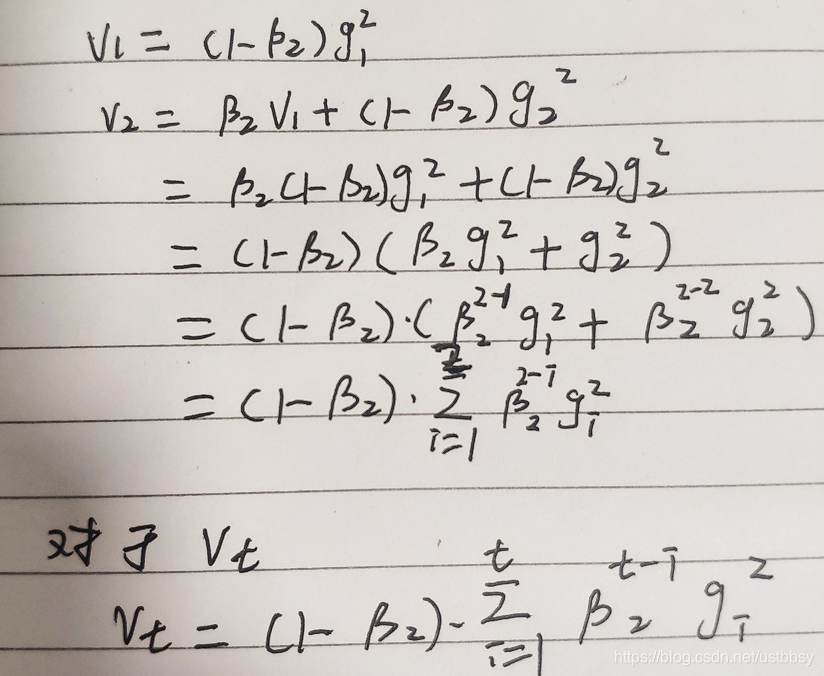 V₁ = (1-β₂)g₁²
V₂ = β₂V₁ + (1-β₂)g₂²
= β₂(1-β₂)g₁² + (1-β₂)g₂²
= (1-β₂)(β₂g₁² + g₂²)
= (1-β₂)·(β₂²⁻¹g₁² + β₂²⁻²g₂²)
= (1-β₂)·∑_{i=1}^{2} β₂^{2-i} g_i²
对于 Vt
Vt = (1-β₂)·∑_{i=1}^{t} β₂^{t-i} g_i²
https://blog.csdn.net/ustbbsy